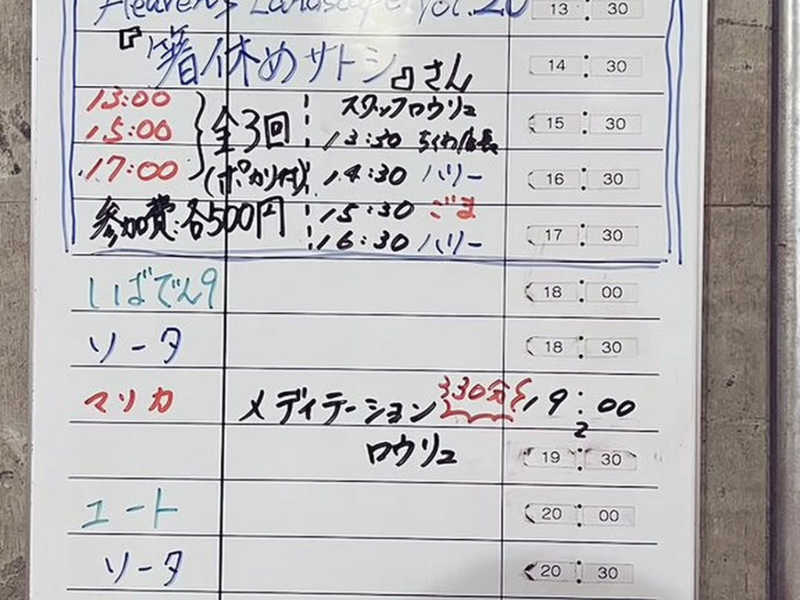 Heaven's Landscape Vol.20 13:30
『箸休めサトシ』さん 14:30
13:00 スタッフロウリュ
15:00 全3回 13:30 ちくわ店長 15:30
17:00 (ポカリ付) 14:30 ハリー 16:30
参加費:各500円 15:30 ごま
16:30 ハリー 17:30
しばでん9 18:00
ソータ 18:30
マリカ メディテーション 30分 19:00
ロウリュ 19:30
ユート 20:00
ソータ 20:30